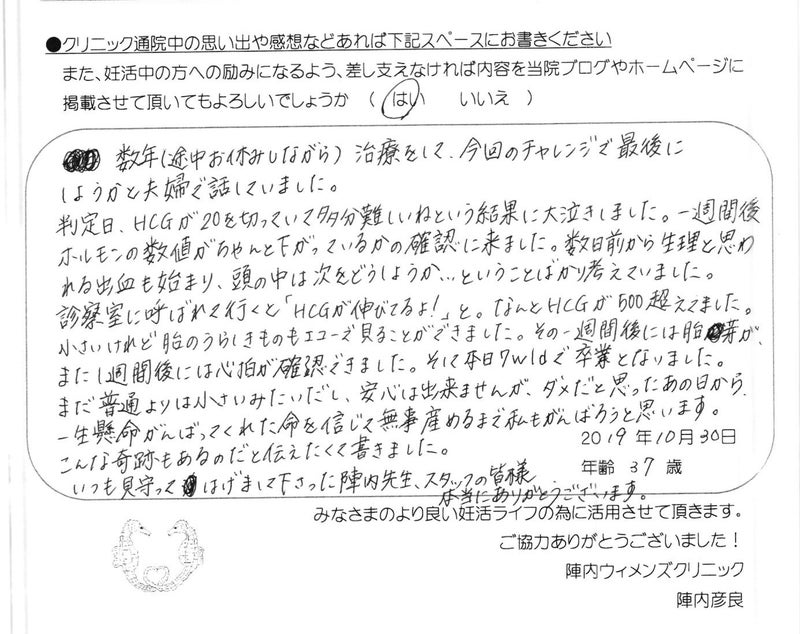 ●クリニック通院中の思い出や感想などあれば下記スペースにお書きください
また、妊活中の方への励みになるよう、差し支えなければ内容を当院ブログやホームページに
掲載させて頂いてもよろしいでしょうか （ はい いいえ ）
数年(途中お休みしながら) 治療をして、今回のチャレンジで最後に
しようかと夫婦で話していました。
判定日、HCGが20を切っていて多分難しいねという結果に大泣きしました。一週間後
ホルモンの数値がちゃんと下がっているかの確認に来ました。数日前から生理と思わ
れる出血も始まり、頭の中は次をどうしようか…ということばかり考えていました。
診察室に呼ばれて行くと「HCGが伸びてるよ!」と。なんとHCGが500超えてました。
小さいけれど胎のうらしきものもエコーで見ることができました。その一週間後には胎芽が、
また1週間後には心拍が確認できました。そして本日7w1dで卒業となりました。
まだ普通よりは小さいみたいだし、安心は出来ませんが、ダメだと思ったあの日から、
一生懸命がんばってくれた命を信じて無事産めるまで私もがんばろうと思います。
こんな奇跡もあるのだと伝えたくて書きました。
2019 年 10 月 30 日
年齢 37 歳
いつも見守って はげまして下さった陣内先生、スタッフの皆様
本当にありがとうございます。
みなさまのより良い妊活ライフの為に活用させて頂きます。
ご協力ありがとうございました！
陣内ウィメンズクリニック
陣内彦良